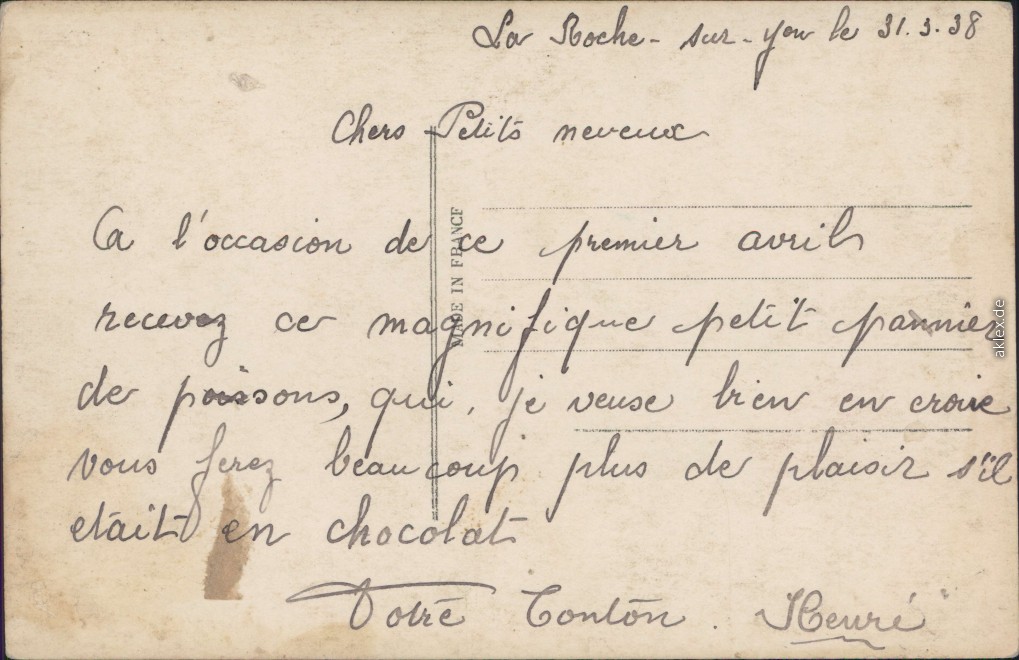 La Roche-sur-yon le 31.3.38
Chers Petits neveux
Ca l'occasion de ce premier avril
recevez ce magnifique petit pannier
de poissons, qui, je veuse bien en croire
vous ferez beaucoup plus de plaisir s'il
etait en chocolat
Votre Tonton. Henri
MADE IN FRANCE
aklex.de